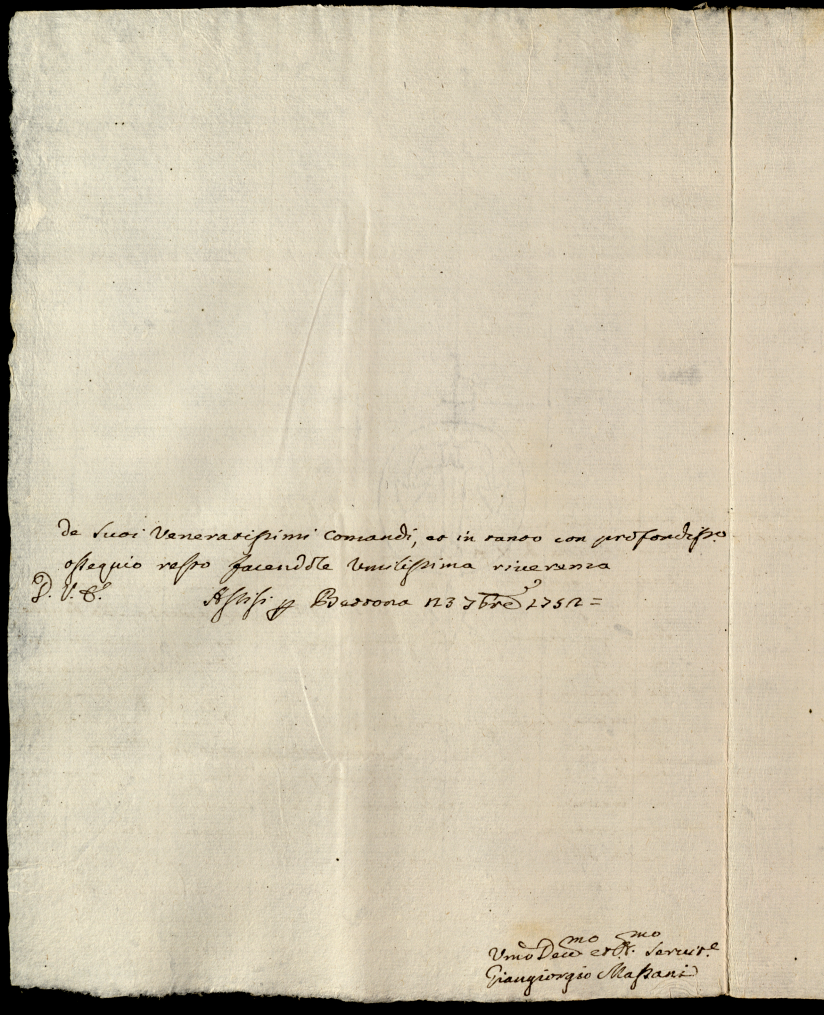 de suoi Veneratissimi Comandi, et in tanto con profondisso.
ossequio resto facendole Umilissima riverenza
D. V. E.
Assisi p Bettona 23 7bre 1752 =
Umo Devmo et Obb.mo Servit.e
Giangiorgio Massani